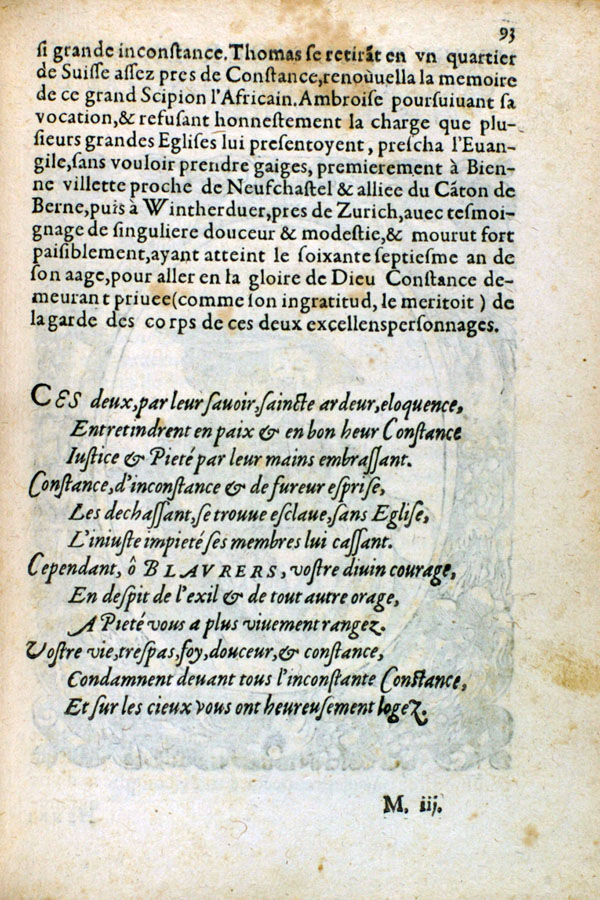 93
si grande inconstance. Thomas se retirāt en vn quartier
de Suisse assez pres de Constance, renoùuella la memoire
de ce grand Scipion l'Africain. Ambroise poursuiuant sa
vocation, & refusant honnestement la charge que plu-
sieurs grandes Eglises lui presentoyent, prescha l'Euan-
gile, sans vouloir prendre gaiges, premierement à Bien-
ne villette proche de Neufchastel & alliee du Cātон de
Berne, puis à Wintherduer, pres de Zurich, auec tesmoi-
gnage de singuliere douceur & modestie, & mourut fort
paisiblement, ayant atteint le soixante septiesme an de
son aage, pour aller en la gloire de Dieu Constance de-
meurant priuee (comme son ingratitud, le meritoit) de
la garde des corps de ces deux excellens personnages.
CES deux, par leur sauoir, saincte ardeur, eloquence,
Entretindrent en paix & en bon heur Constance
Iustice & Pieté par leur mains embrassant.
Constance, d'inconstance & de fureur esprise,
Les dechassant, se trouue esclaue, sans Eglise,
L'iniuste impieté ses membres lui cassant.
Cependant, ô BLAVRERS, vostre diuin courage,
En despit de l'exil & de tout autre orage,
A Pieté vous a plus viuement rangez.
Vostre vie, trespas, foy, douceur, & constance,
Condamnent deuant tous l'inconstante Constance,
Et sur les cieux vous ont heureusement logez.
M. iij.